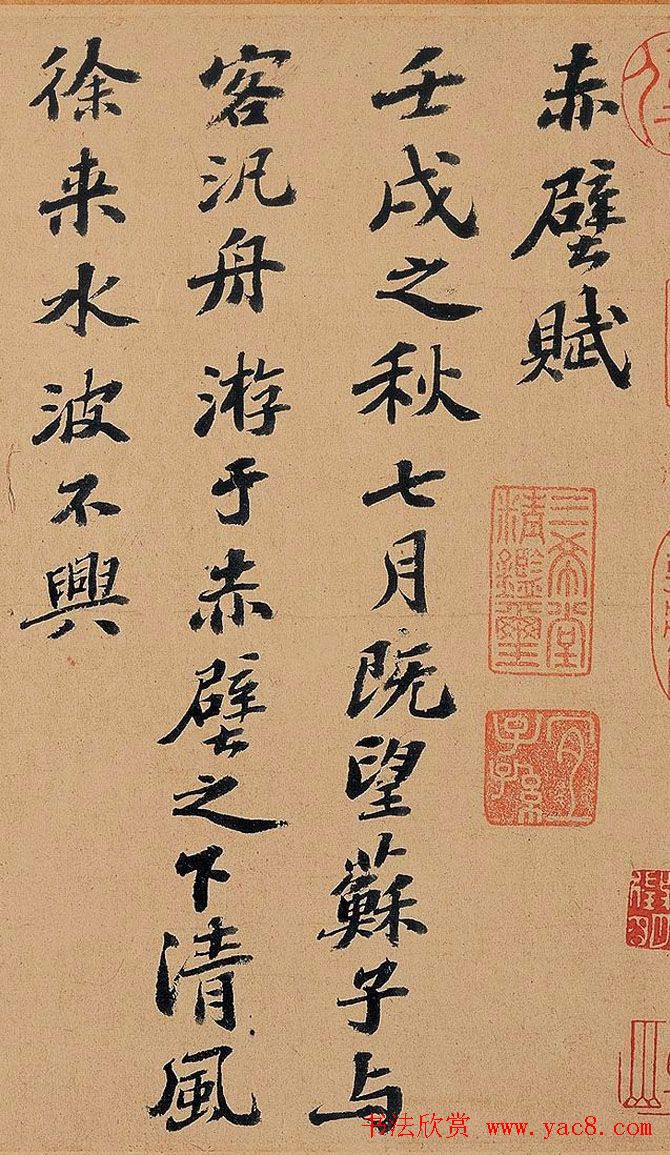 赤壁賦
壬戌之秋七月既望蘇子与
客汎舟游于赤壁之下清風
徐来水波不興
三希堂
精鑑璽
宜
子孫
书法欣赏 www.yac8.com